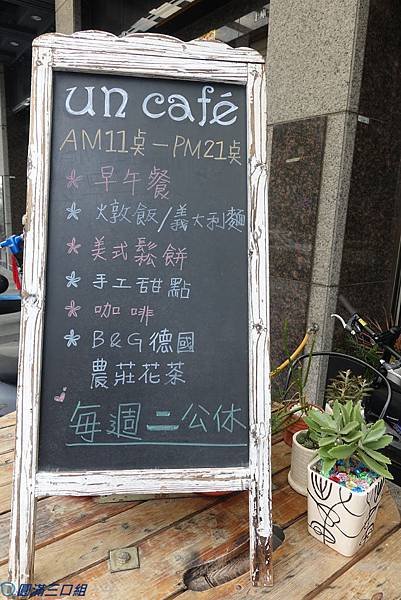 un café
AM11點—PM21點
* 早午餐
* 燉飯/義大利麵
* 美式鬆餅
* 手工甜點
* 咖啡
* B&G德國
農莊花茶
每週二公休
圓滿三口組